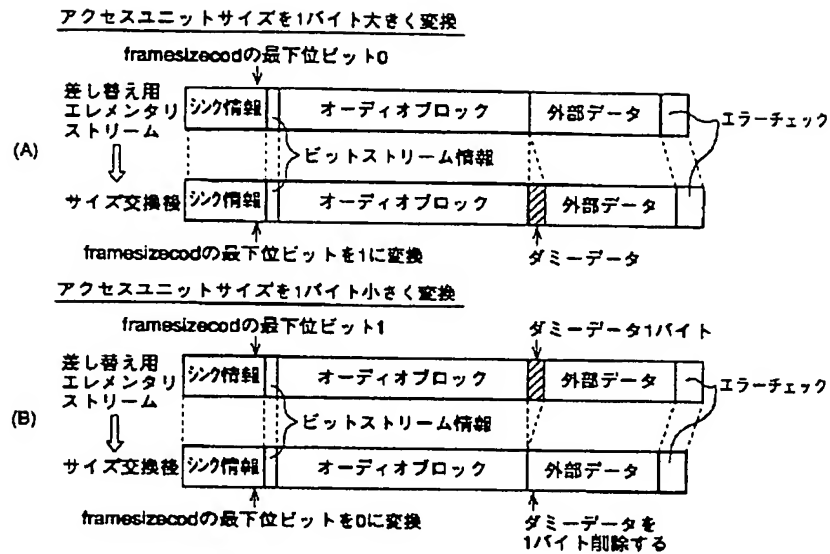 アクセスユニットサイズを1バイト大きく変換
framesizecodの最下位ビット0
差し替え用
エレメンタリ
ストリーム
シンク情報
オーディオブロック
外部データ
エラーチェック
(A)
ビットストリーム情報
サイズ交換後
シンク情報
オーディオブロック
外部データ
framesizecodの最下位ビットを1に変換
ダミーデータ
アクセスユニットサイズを1バイト小さく変換
framesizecodの最下位ビット1
ダミーデータ1バイト
差し替え用
エレメンタリ
ストリーム
シンク情報
オーディオブロック
外部データ
エラーチェック
(B)
ビットストリーム情報
サイズ交換後
シンク情報
オーディオブロック
外部データ
framesizecodの最下位ビットを0に変換
ダミーデータを
1バイト削除する